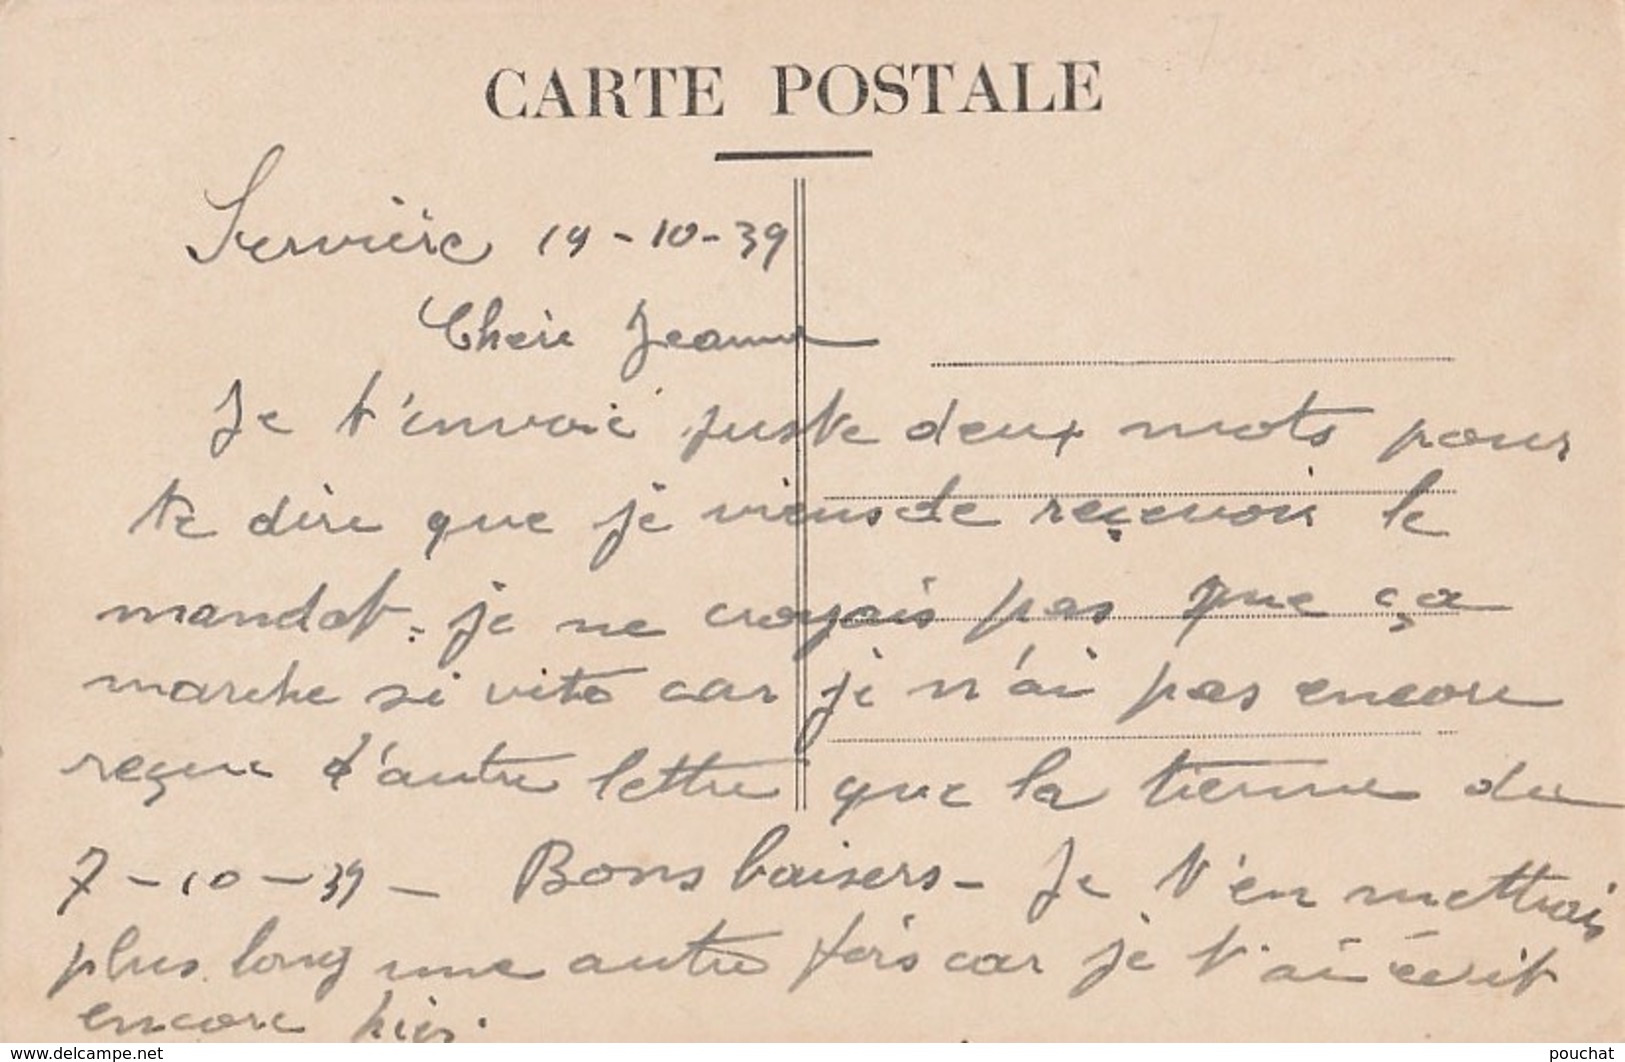 CARTE POSTALE
Servière 19-10-39
Chère Jeanne
Je t'envoie juste deux mots pour
te dire que je viens de reçevoir le
mandat. je ne croyais pas que ça
marche si vite car je n'ai pas encore
reçue d'autre lettre que la tienne du
7-10-39- Bons baisers- Je t'en mettrais
plus long une autre fois car je t'ai écrit
encore hier.
www.delcampe.net
pouchat